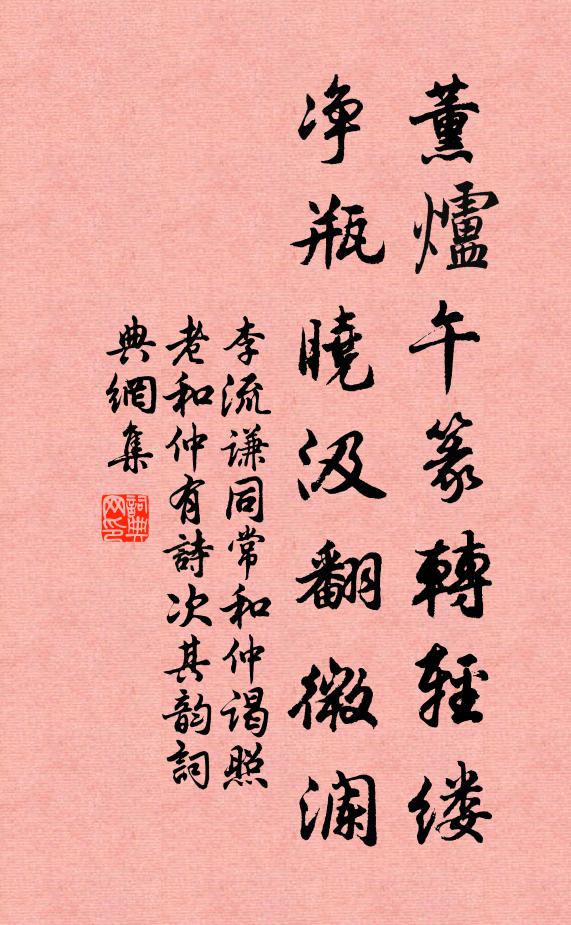 薰爐午篆轉輕缕
净瓶曉汲翻微澜
李流谦同常和仲谒照
老和仲有詩次其韵詞
典網集
詞典网印